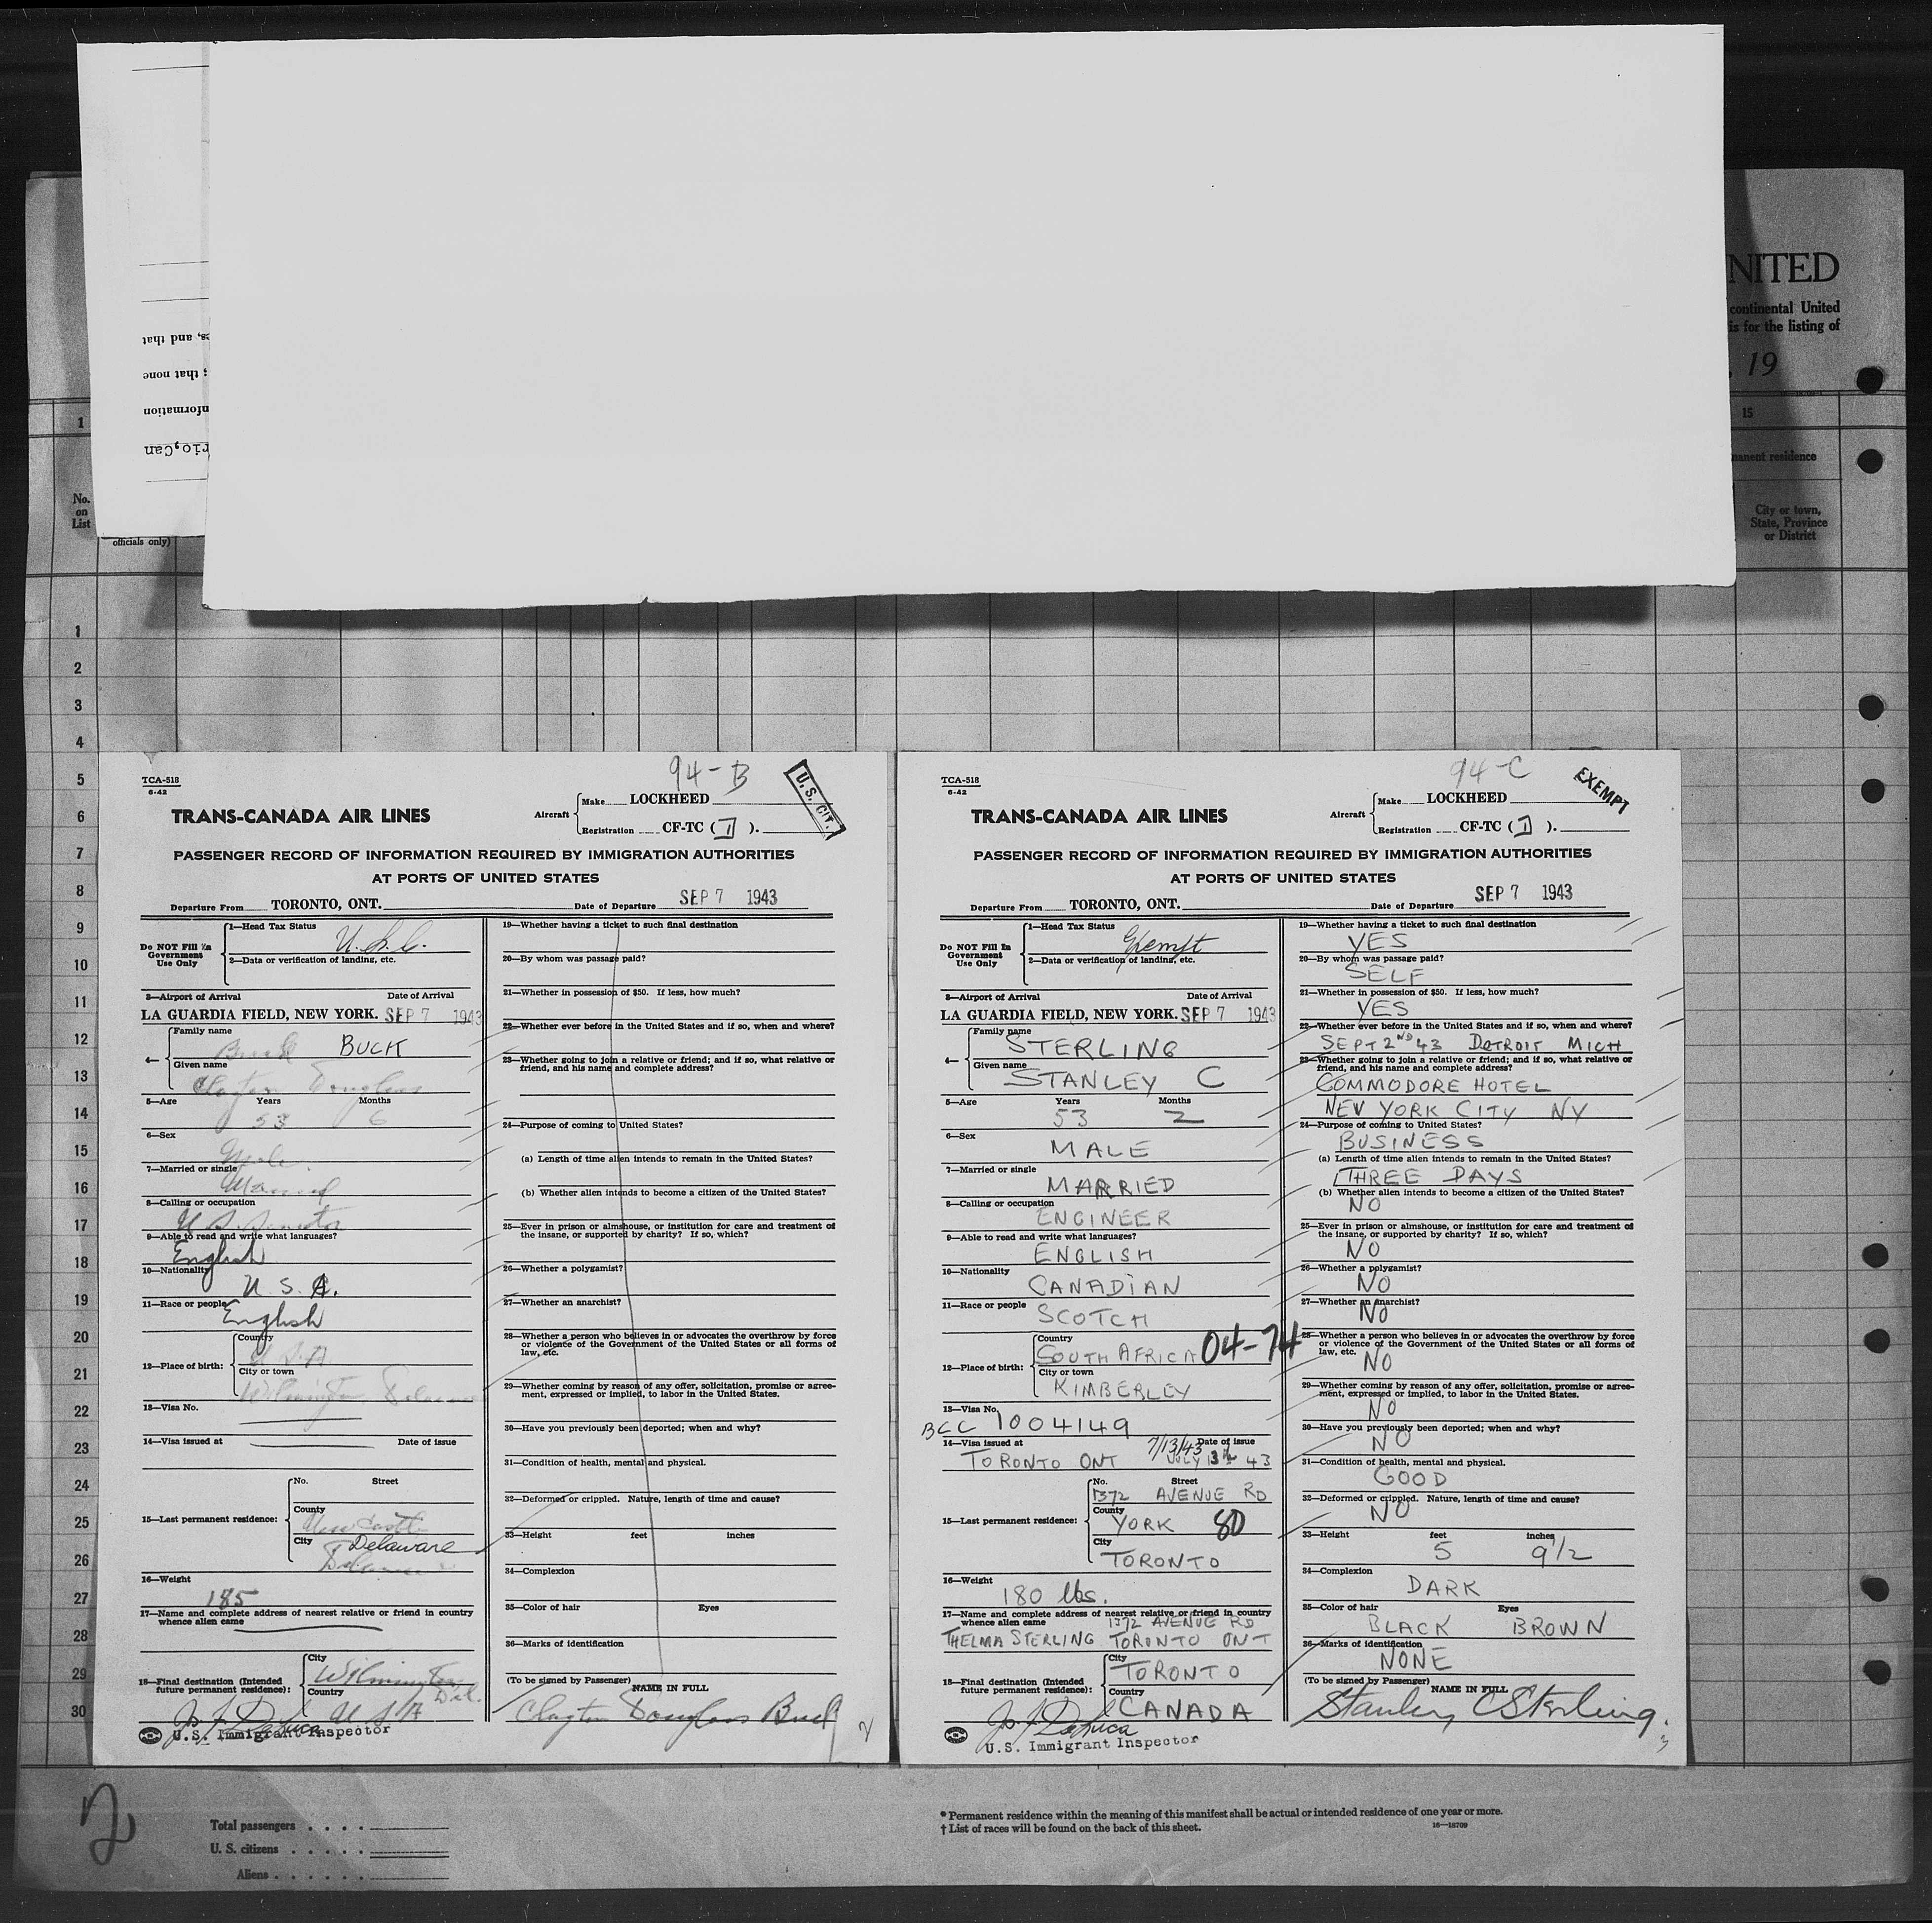 NITED
continental United
is for the listing of
, 19
es, and that
; that none
nformation
rio,Can
1
15
manent residence
No.
on
List
City or town,
State, Province
or District
officials only)
1
2
3
4
5
6
7
8
9
10
11
12
13
14
15
16
17
18
19
20
21
22
23
24
25
26
27
28
29
30
94-B
U.S. CIT.
TCA-518
6-42
TRANS-CANADA AIR LINES
Aircraft
Make LOCKHEED
Registration CF-TC (T).
PASSENGER RECORD OF INFORMATION REQUIRED BY IMMIGRATION AUTHORITIES
AT PORTS OF UNITED STATES
Departure From TORONTO, ONT. Date of Departure SEP 7 1943
Do NOT Fill In
Government
Use Only
1—Head Tax Status
U.S.C.
2—Data or verification of landing, etc.
3—Airport of Arrival Date of Arrival
LA GUARDIA FIELD, NEW YORK. SEP 7 1943
4— Family name
Buck BUCK
Given name
Clayton Douglass
5—Age Years Months
53 6
6—Sex
Male
7—Married or single
Married
8—Calling or occupation
U.S. Senator
9—Able to read and write what languages?
English
10—Nationality
U.S.A.
11—Race or people
English
12—Place of birth:
Country
U.S.A
City or town
Wilmington Delaware
13—Visa No.
14—Visa issued at Date of issue
15—Last permanent residence:
No. Street
County
New Castle
City Delaware
Delaware
16—Weight
185
17—Name and complete address of nearest relative or friend in country
whence alien came
18—Final destination (Intended
future permanent residence):
City
Wilmington
Del.
Country
U S A
U.S. Immigrant Inspector
19—Whether having a ticket to such final destination
20—By whom was passage paid?
21—Whether in possession of $50. If less, how much?
22—Whether ever before in the United States and if so, when and where?
23—Whether going to join a relative or friend; and if so, what relative or
friend, and his name and complete address?
24—Purpose of coming to United States?
(a) Length of time alien intends to remain in the United States?
(b) Whether alien intends to become a citizen of the United States?
25—Ever in prison or almshouse, or institution for care and treatment of
the insane, or supported by charity? If so, which?
26—Whether a polygamist?
27—Whether an anarchist?
28—Whether a person who believes in or advocates the overthrow by force
or violence of the Government of the United States or all forms of
law, etc.
29—Whether coming by reason of any offer, solicitation, promise or agree-
ment, expressed or implied, to labor in the United States.
30—Have you previously been deported; when and why?
31—Condition of health, mental and physical.
32—Deformed or crippled. Nature, length of time and cause?
33—Height feet inches
34—Complexion
35—Color of hair Eyes
36—Marks of identification
(To be signed by Passenger)
NAME IN FULL
Clayton Douglass Buck
2
94-C
EXEMPT
TCA-518
6-42
TRANS-CANADA AIR LINES
Aircraft
Make LOCKHEED
Registration CF-TC (T).
PASSENGER RECORD OF INFORMATION REQUIRED BY IMMIGRATION AUTHORITIES
AT PORTS OF UNITED STATES
Departure From TORONTO, ONT. Date of Departure SEP 7 1943
Do NOT Fill In
Government
Use Only
1—Head Tax Status
Exempt
2—Data or verification of landing, etc.
3—Airport of Arrival Date of Arrival
LA GUARDIA FIELD, NEW YORK. SEP 7 1943
4— Family name
STERLING
Given name
STANLEY C
5—Age Years Months
53 2
6—Sex
MALE
7—Married or single
MARRIED
8—Calling or occupation
ENGINEER
9—Able to read and write what languages?
ENGLISH
10—Nationality
CANADIAN
11—Race or people
SCOTCH
12—Place of birth:
Country
SOUTH AFRICA 04-74
City or town
KIMBERLEY
13—Visa No.
BCC 1004149
14—Visa issued at Date of issue
7/13/43
TORONTO ONT JULY 13th 43
15—Last permanent residence:
No. Street
1372 AVENUE RD
County
YORK 80
City
TORONTO
16—Weight
180 lbs.
17—Name and complete address of nearest relative or friend in country
whence alien came
1372 AVENUE RD
THELMA STERLING TORONTO ONT
18—Final destination (Intended
future permanent residence):
City
TORONTO
Country
CANADA
U.S. Immigrant Inspector
19—Whether having a ticket to such final destination
YES
20—By whom was passage paid?
SELF
21—Whether in possession of $50. If less, how much?
YES
22—Whether ever before in the United States and if so, when and where?
SEPT 2ND 43 DETROIT MICH
23—Whether going to join a relative or friend; and if so, what relative or
friend, and his name and complete address?
COMMODORE HOTEL
NEW YORK CITY NY
24—Purpose of coming to United States?
BUSINESS
(a) Length of time alien intends to remain in the United States?
THREE DAYS
(b) Whether alien intends to become a citizen of the United States?
NO
25—Ever in prison or almshouse, or institution for care and treatment of
the insane, or supported by charity? If so, which?
NO
26—Whether a polygamist?
NO
27—Whether an anarchist?
NO
28—Whether a person who believes in or advocates the overthrow by force
or violence of the Government of the United States or all forms of
law, etc.
NO
29—Whether coming by reason of any offer, solicitation, promise or agree-
ment, expressed or implied, to labor in the United States.
NO
30—Have you previously been deported; when and why?
NO
31—Condition of health, mental and physical.
GOOD
32—Deformed or crippled. Nature, length of time and cause?
NO
33—Height feet inches
5 9 1/2
34—Complexion
DARK
35—Color of hair Eyes
BLACK BROWN
36—Marks of identification
NONE
(To be signed by Passenger)
NAME IN FULL
Stanley C Sterling.
3
2
Total passengers . . . .
U. S. citizens . . . . .
Aliens . . . . . .
* Permanent residence within the meaning of this manifest shall be actual or intended residence of one year or more.
† List of races will be found on the back of this sheet.
16—18709